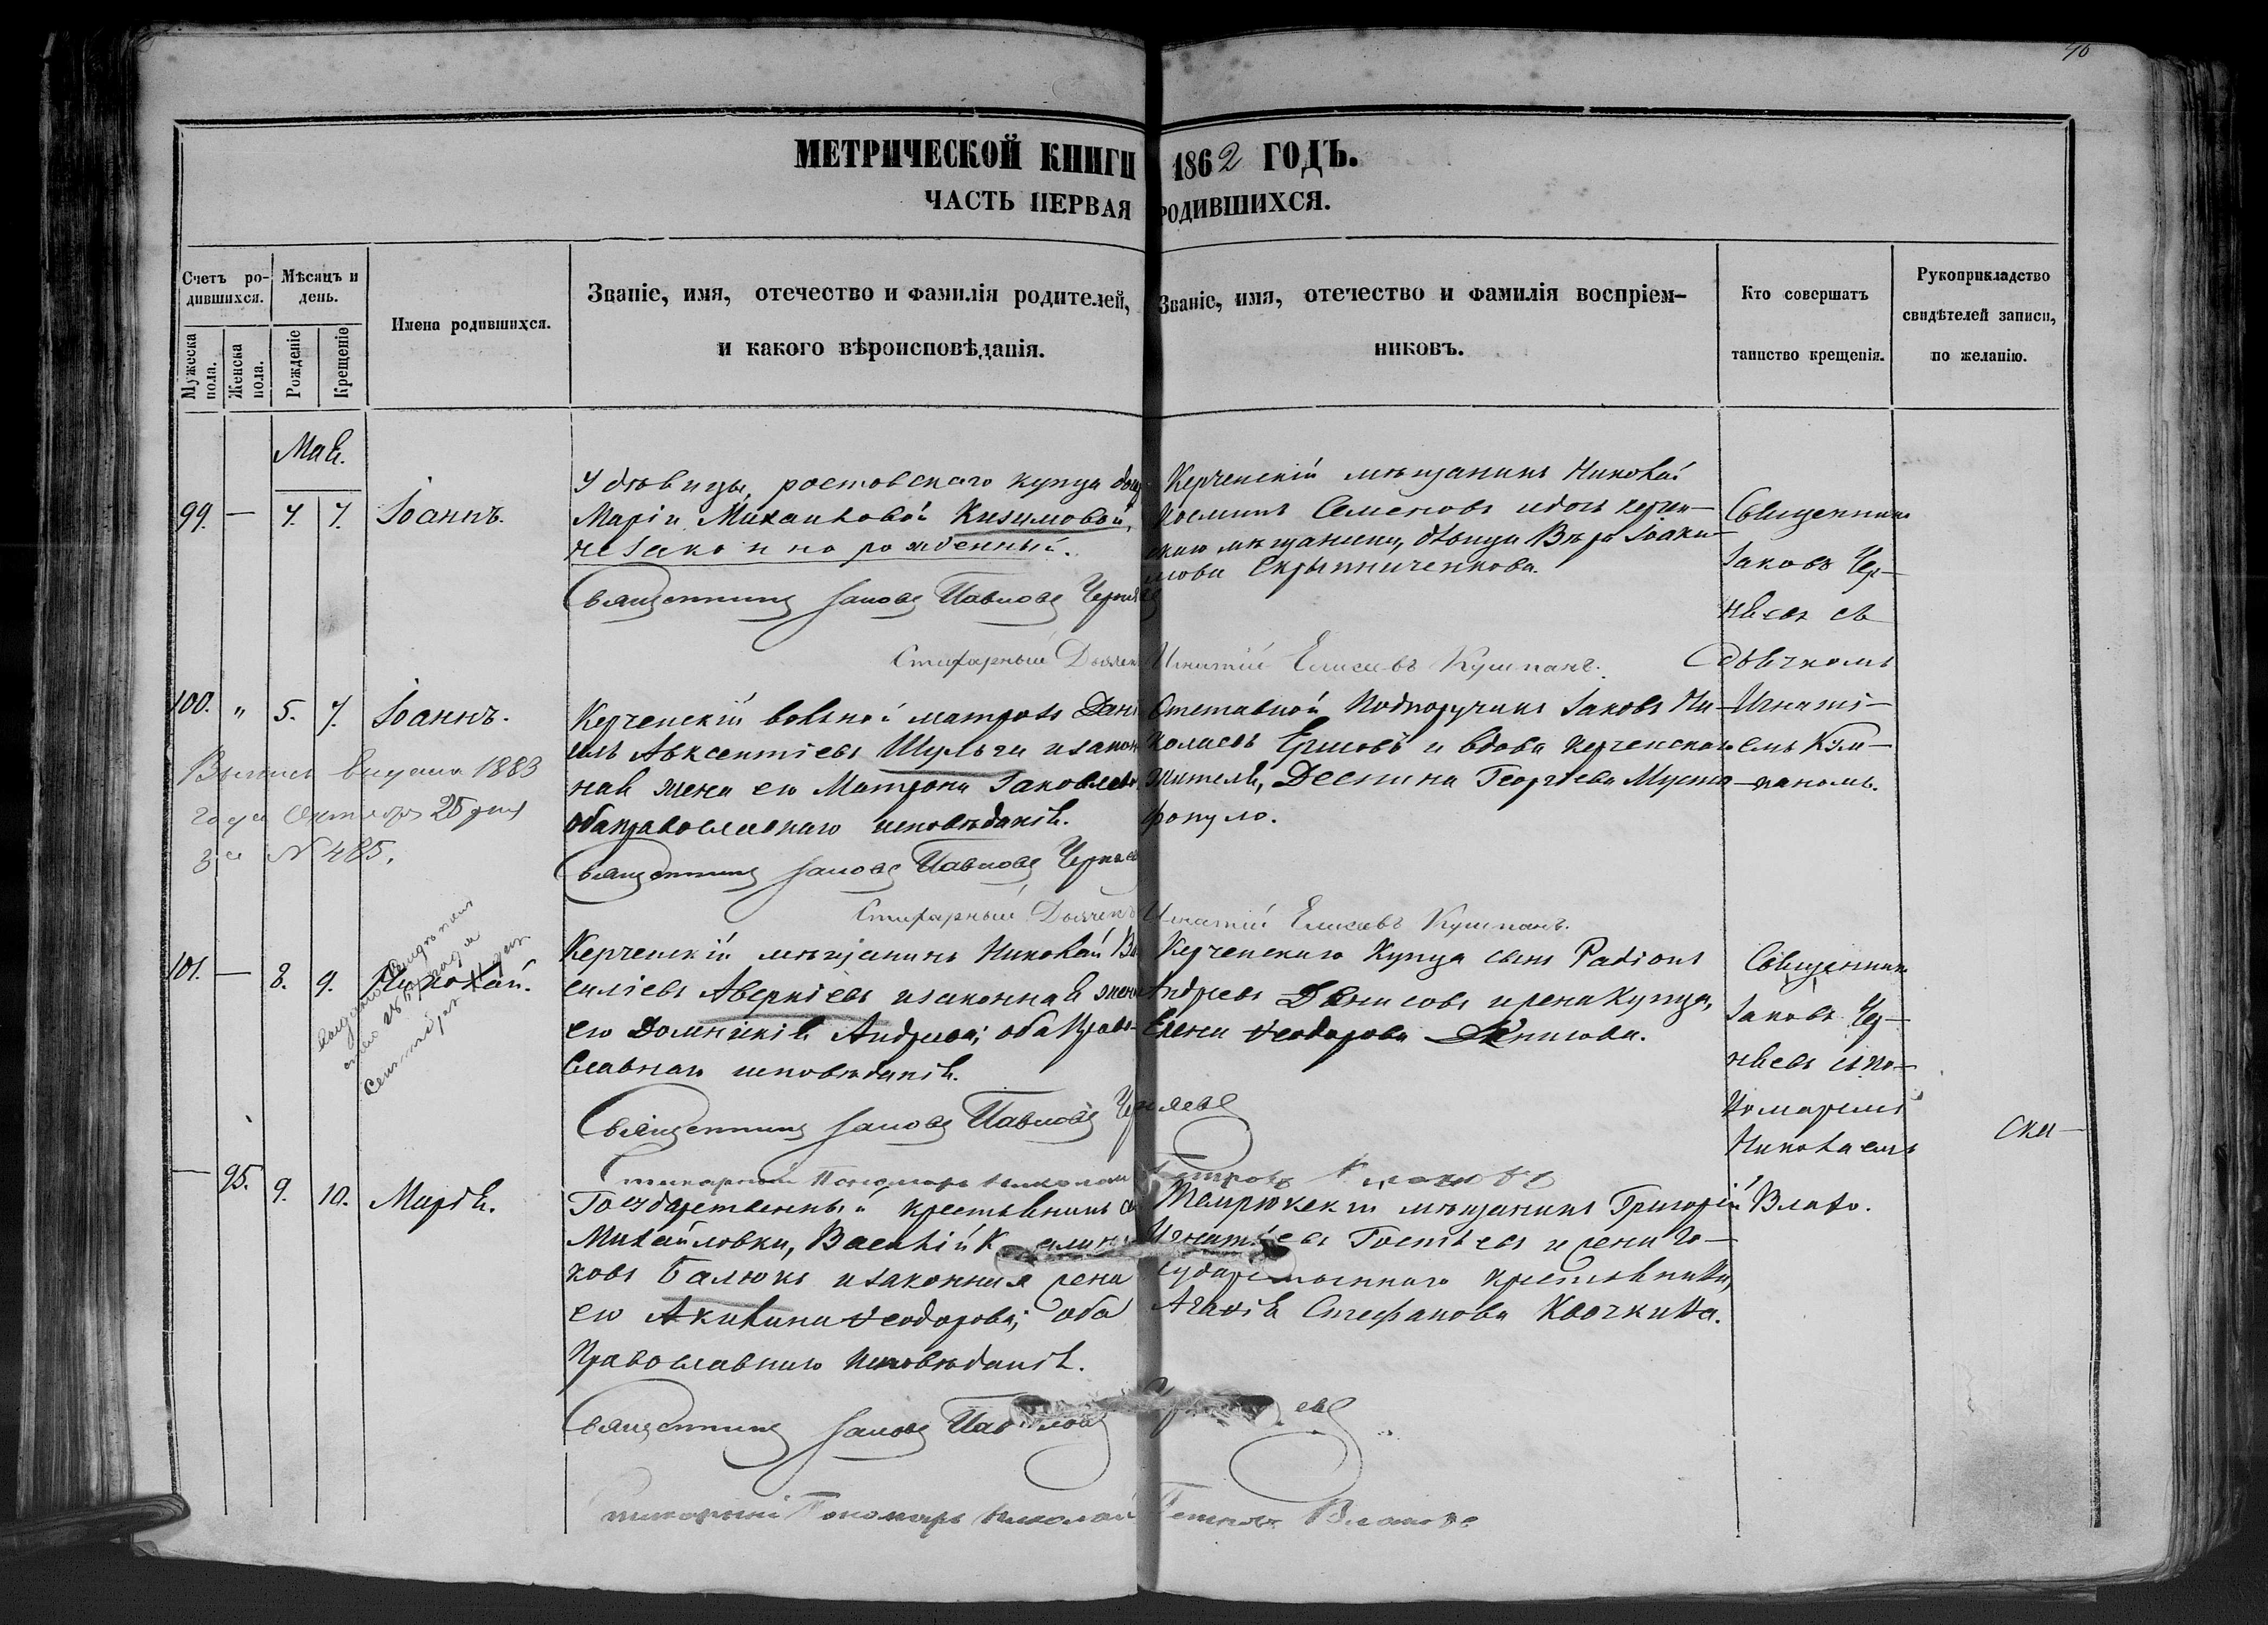 МЕТРИЧЕСКОЙ КНИГИ 1862 ГОДЪ.
ЧАСТЬ ПЕРВАЯ РОДИВШИХСЯ.
Счетъ родившихся.
Мужеска пола.
Женска пола.
Мѣсяцъ и день.
Рожденіе
Крещеніе
Имена родившихся.
Званіе, имя, отечество и фамилія родителей,
и какого вѣроисповѣданія.
Званіе, имя, отечество и фамилія воспріем-
никовъ.
Кто совершатъ
таинство крещенія.
Рукоприкладство
свидѣтелей записи,
по желанію.
Май.
99. — 7. 7. Іоаннъ.
У дѣвицы, ростовскаго купца
Маріи Михаиловой Кизимовой,
незаконно рожденный.
Священникъ Іаковъ Павловъ Черняевъ
Стихарный Дьячекъ Игнатій Елисевъ Кушпанъ.
Керченскій мѣщанинъ Николай
Косминъ Семеновъ и дочь керчен-
скаго мѣщанина, дѣвица Вѣра Іоаки-
мова Скрыпниченкова.
Священникъ
Іаковъ Чер-
няевъ съ
дьячкомъ
Игнаті-
емъ Куш-
паномъ.
100. " 5. 7. Іоаннъ.
Выпись выдана 1883
года Октября 25 дня
за N 485.
Керченскій вольной матросъ Дані-
илъ Авксентіевъ Шульга и закон-
ная жена его Матрона Іаковлева
оба православнаго исповѣданія.
Священникъ Іаковъ Павловъ Черняевъ
Стихарный Дьячекъ Игнатій Елисевъ Кушпанъ.
Отставной Подпоручикъ Іаковъ Ни-
колаевъ Ершовъ и вдова керченскаго
жителя, Деспина Георгіева Муста-
фопуло.
101. — 8. 9. Николай.
Керченскій мѣщанинъ Николай Ва-
силіевъ Аверкіевъ и законная жена
его Домникія Андреева; оба право-
славнаго исповѣданія.
Священникъ Іаковъ Павловъ Черняевъ
Стихарный Пономарь Николай Петровъ
Керченскаго Купца сынъ Радіонъ
Андреевъ Денисовъ и жена купца,
Елена Ѳеодорова Денисова.
Священникъ
Іаковъ Чер-
няевъ съ по-
номаремъ
Николаемъ
Влахо.
— 95. 9. 10. Марія.
Государственный крестьянинъ
Михайловки, Василій
ковъ Балюкъ и законная жена
его Акилина Ѳеодорова; оба
Православнаго исповѣданія.
Священникъ Іаковъ Павловъ
Стихарный Пономарь Николай Петровъ
Темрюкскій мѣщанинъ Григорій
Игнатьевъ Гостевъ и жена го-
сударственнаго крестьянина,
Агафія Стефанова Квочкина.